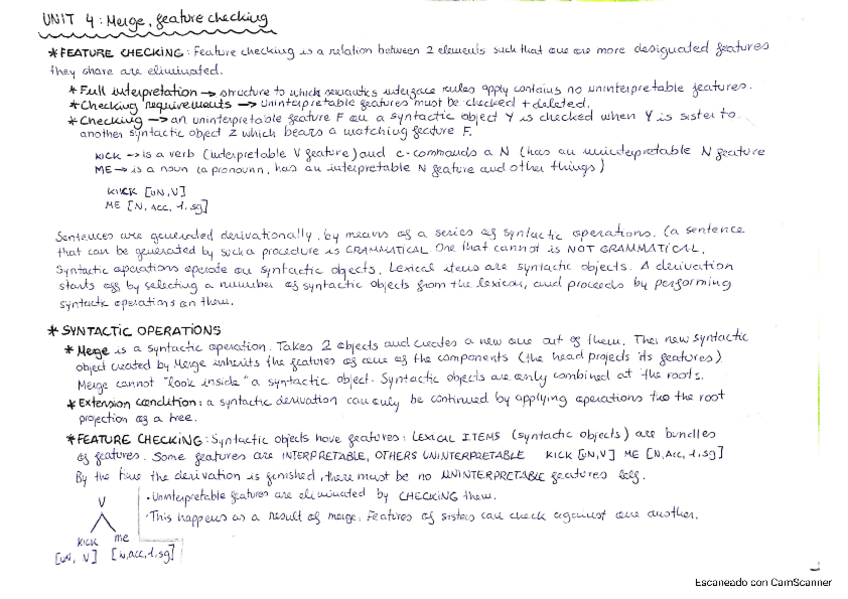 UNIT 4: Merge, feature checking
*FEATURE CHECKING: Feature checking is a relation between 2 elements such that one are more designated features
they share are eliminated.
*Full interpretation → structure to which semantics interface rules apply contains no uninterpretable features.
*Checking requirements → uninterpretable features must be checked + deleted.
*Checking → an uninterpretable feature F on a syntactic object Y is checked when Y is sister to
another syntactic object Z which bears a matching feature F.
KICK → is a verb (interpretable V feature) and c-commands a N (has an uninterpretable N feature
ME → is a noun (a pronoun, has an interpretable N feature and other things)
KICK [uN, V]
ME [N, ACC, 1, sg]
Sentences are generated derivationally, by means of a series of syntactic operations. (a sentence
that can be generated by such a procedure is GRAMMATICAL. One that cannot is NOT GRAMMATICAL.
Syntactic operations operate on syntactic objects. Lexical items are syntactic objects. A derivation
starts off by selecting a number of syntactic objects from the lexicon, and proceeds by performing
syntactic operations on them.
*SYNTACTIC OPERATIONS
*Merge is a syntactic operation. Takes 2 objects and creates a new one out of them. The new syntactic
object created by Merge inherits the features of one of the components (the head projects its features)
Merge cannot "look inside" a syntactic object. Syntactic objects are only combined at the roots.
*Extension condition: a syntactic derivation can only be continued by applying operations to the root
projection of a tree.
*FEATURE CHECKING: Syntactic objects have features: LEXICAL ITEMS (syntactic objects) are bundles
of features. Some features are INTERPRETABLE, OTHERS UNINTERPRETABLE KICK [uN, V] ME [N, Acc, 1, sg]
By the time the derivation is finished, there must be no UNINTERPRETABLE features left.
V
· Uninterpretable features are eliminated by CHECKING them.
· This happens as a result of merge. Features of sisters can check against one another.
KICK me
[uN, V] [N, acc, 1, sg]
Escaneado con CamScanner